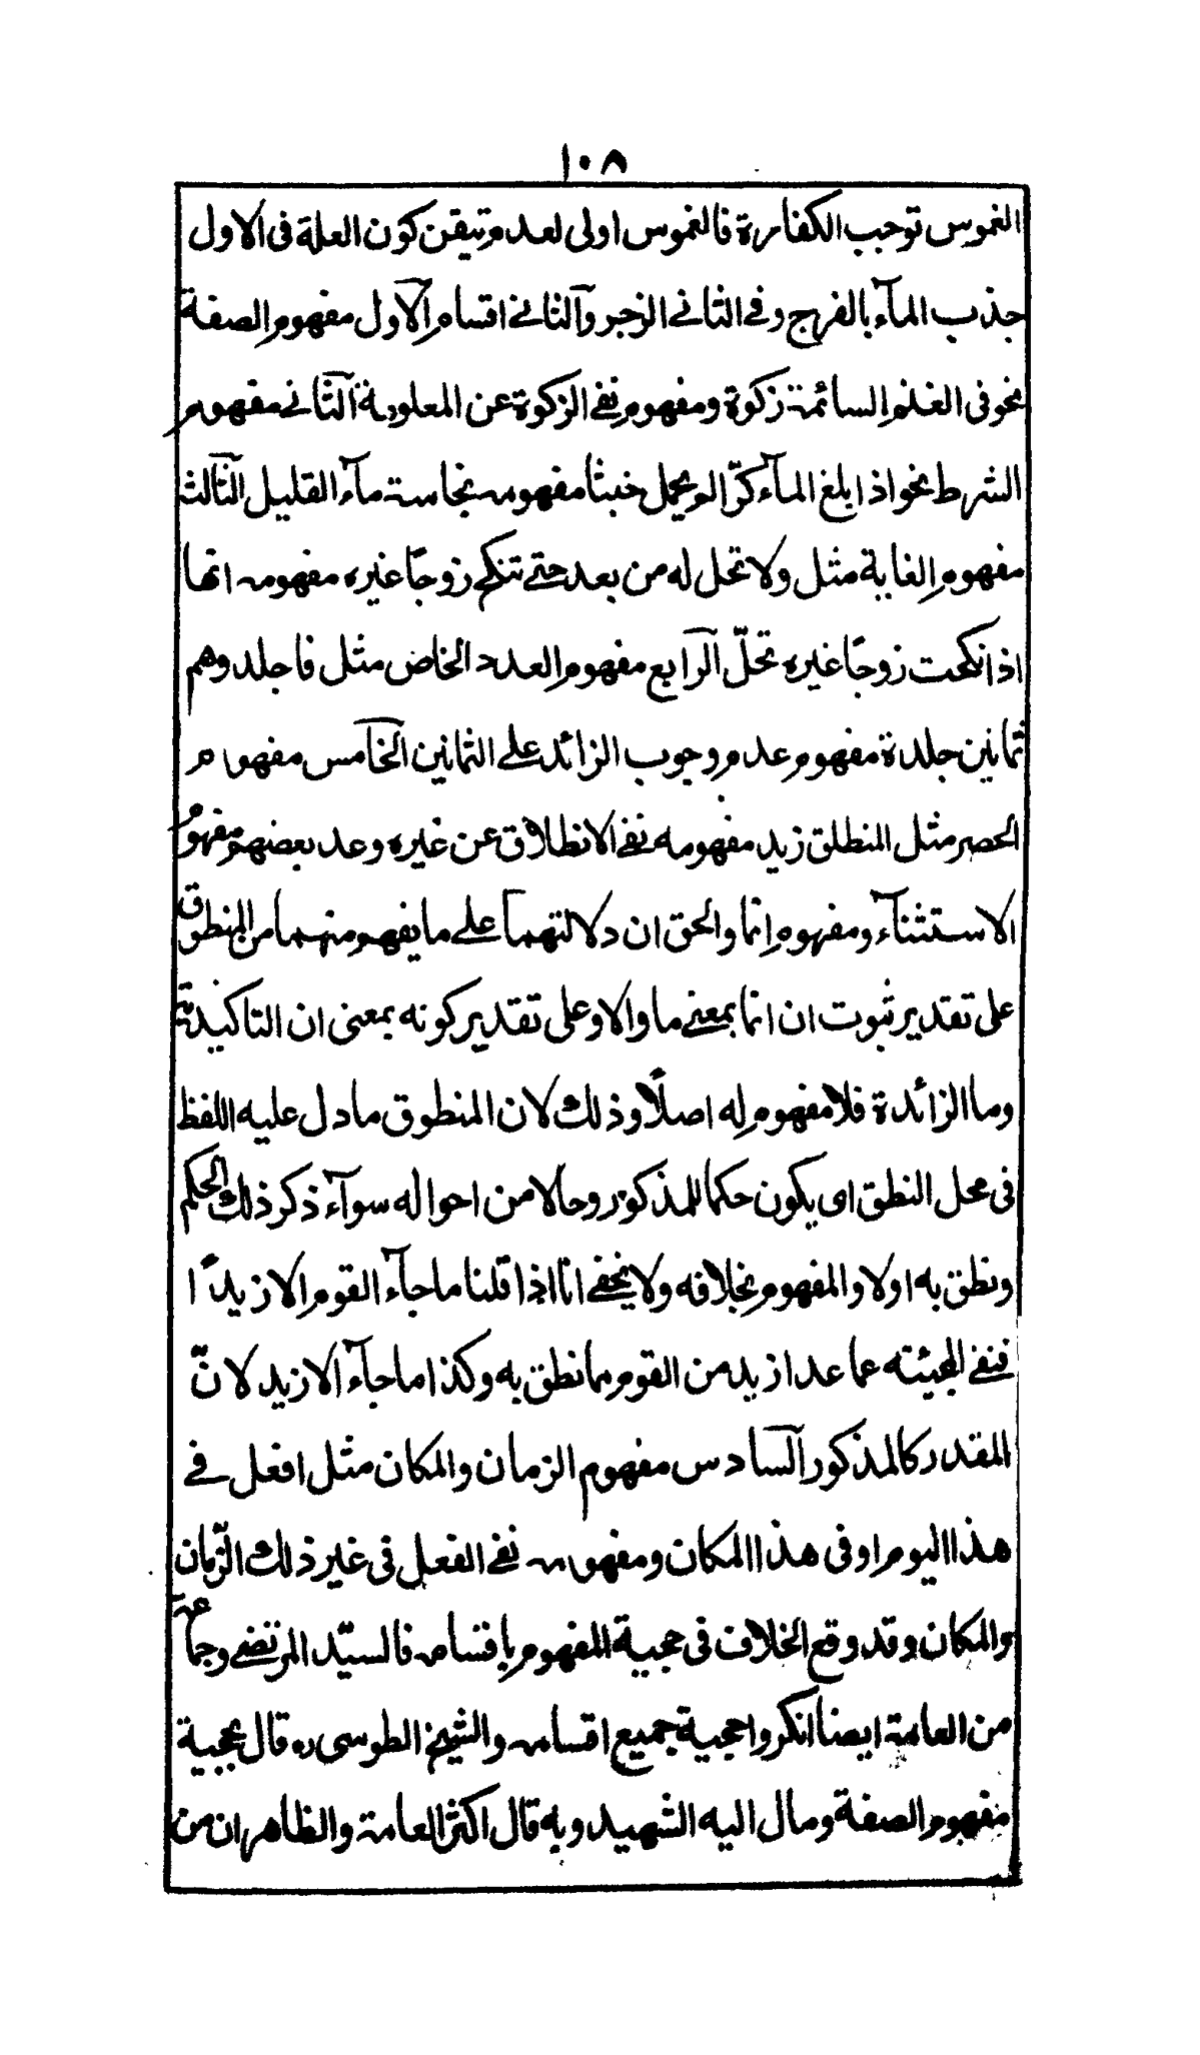 ١٠٨
الغموس توجب الكفارة فالغموس اولى لعدم تيقن كون العلة فى الاول
جذب المآء بالفرج وفے الثانے الزجر والثانے اقسام الاول مفهوم الصفة
نحو فى الغنم السائمة زكوة ومفهوم نفے الزكوة عن المعلوفة الثانے مفهوم
الشرط نحو اذا بلغ المآء كرّا لم يحمل خبثا مفهومه نجاسة مآء القليل الثالث
مفهوم الغاية مثل ولا تحل له من بعد حتے تنكح زوجًا غيره مفهومه انها
اذا نكحت زوجًا غيره تحلّ الرابع مفهوم العدد الخاص مثل فاجلدوهم
ثمانين جلدة مفهوم عدم وجوب الزائد علے الثمانين الخامس مفهوم
الحصر مثل المنطلق زيد مفهومه نفے الانطلاق عن غيره وعد بعضهم مفهومُ
الاستثنآء ومفهوم انما والحق ان دلالتهما علے ما يفهم منهما من المنطوق
على تقدير ثبوت ان انما بمعنے ما والا وعلى تقدير كونه بمعنى ان التاكيدية
وما الزائدة فلا مفهوم له اصلًا وذلك لان المنطوق ما دل عليه اللفظ
فى محل النطق اى يكون حكما للمذكور وحالا من احواله سوآء ذكر ذلك الحكم
ونطق به اولا والمفهوم بخلافه ولا يخفے انا اذا قلنا ما جآء القوم الا زيدًا
فنفے المجيئة عما عدا زيد من القوم مما نطق به وكذا ما جآء الا زيد لانّ
المقدر كالمذكور السادس مفهوم الزمان والمكان مثل افعل فے
هذا اليوم او فى هذا المكان ومفهومه نفے الفعل فى غير ذلك الزّمان
والمكان وقد وقع الخلاف فى حجية المفهوم باقسامه فالسيّد المرتضے وجماعة
من العامة ايضا انكروا حجية جميع اقسامه والشيخ الطوسى ره قال بحجية
مفهوم الصفة ومال اليه الشهيد وبه قال اكثر العامة والظاهر ان من